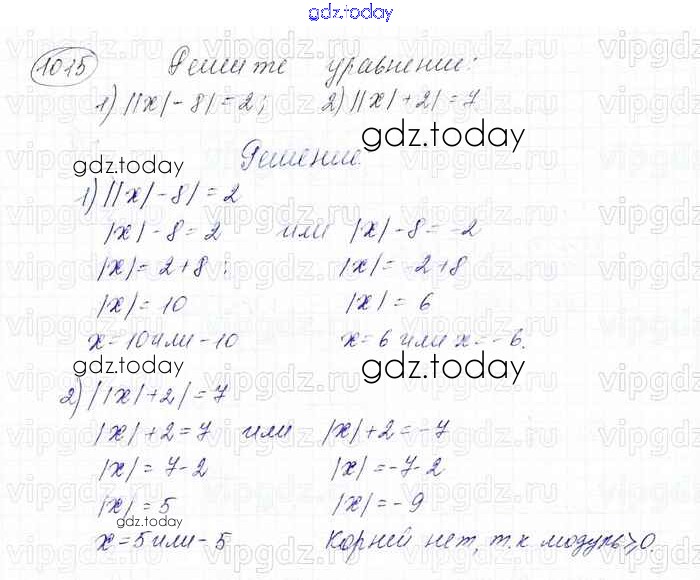 gdz.today
1015 Решите уравнение:
1) ||x| - 8| = 2; 2) ||x| + 2| = 7
gdz.today
gdz.today Решение
1) ||x| - 8| = 2
|x| - 8 = 2 или |x| - 8 = -2
|x| = 2 + 8; |x| = -2 + 8
|x| = 10 |x| = 6
x = 10 или -10 x = 6 или x = -6.
gdz.today gdz.today
2) ||x| + 2| = 7
|x| + 2 = 7 или |x| + 2 = -7
|x| = 7 - 2 |x| = -7 - 2
|x| = 5 |x| = -9
gdz.today
x = 5 или -5 Корней нет, т.к модуль ⩾ 0.
vipgdz.ru